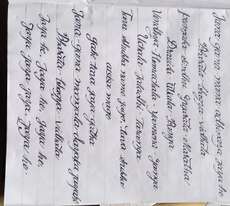 Jana gana mana adhinaya jaya he
Bharata bhagya vidhata
Punjaba Sindhu Gujarata Maratha
Dravida Utkala Banga
Vindhya Himachala Yamuna Ganga
Uchala Jaladhi Taranga
Tava shubha name jage, tava shubha
asisa mage
Gahe tava jaya gatha
Jana gana mangala dayaka jayahe
Bharata bhagya vidhata
Jaya he, Jaya he, jaya he,
Jaya jaya jaya, jaya he.